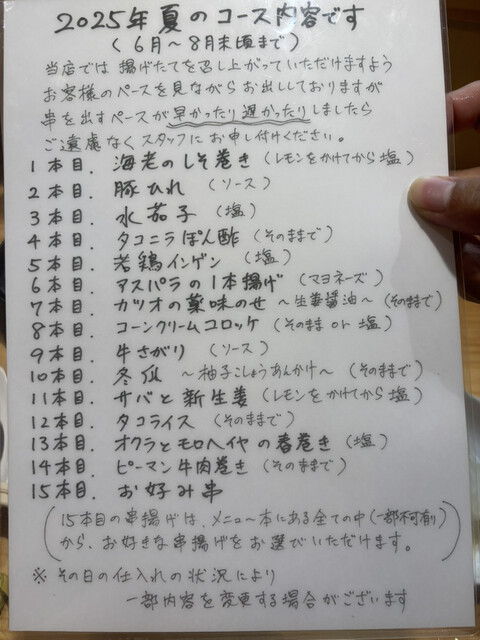 2025年 夏のコース内容です
(6月〜8月末頃まで)
当店では 揚げたてを召し上がっていただけますよう
お客様のペースを見ながらお出ししておりますが
串を出すペースが 早かったり遅かったりしましたら
ご遠慮なくスタッフにお申し付けください。
1本目. 海老のしそ巻き (レモンをかけてから塩)
2本目. 豚ひれ (ソース)
3本目. 水茄子 (塩)
4本目. タコニラぽん酢 (そのままで)
5本目. 若鶏インゲン (塩)
6本目. アスパラの1本揚げ (マヨネーズ)
7本目. カツオの薬味のせ 〜生姜醤油〜 (そのままで)
8本目. コーンクリームコロッケ (そのまま or 塩)
9本目. 牛さがり (ソース)
10本目. 冬瓜 〜柚子こしょうあんかけ〜 (そのままで)
11本目. サバと新生姜 (レモンをかけてから塩)
12本目. タコライス (そのままで)
13本目. オクラとモロヘイヤの春巻き (塩)
14本目. ピーマン牛肉巻き (そのままで)
15本目. お好み串
(15本目の串揚げは、メニュー本にある全ての中(一部不可有)
から、お好きな串揚げをお選びいただけます。)
※ その日の仕入れの状況により
一部内容を変更する場合がございます